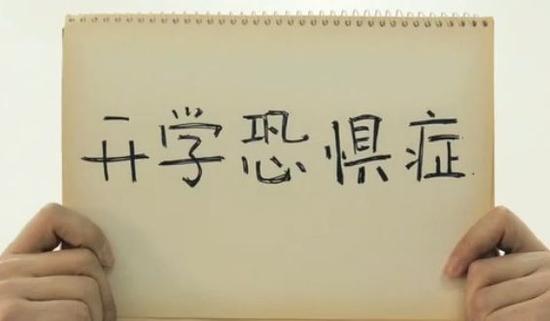 开学恐惧症